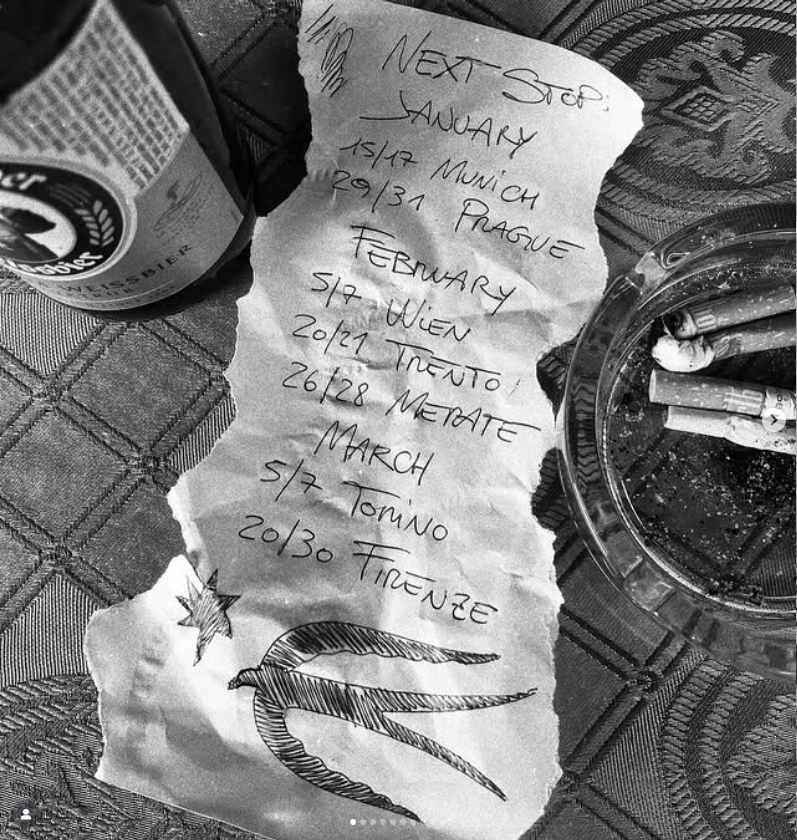 NEXT STOP:
JANUARY
15/17 MUNICH
29/31 PRAGUE
FEBRUARY
5/7 WIEN
20/21 TRENTO
26/28 MERATE
MARCH
5/7 TORINO
20/30 FIRENZE
WEISSBIER